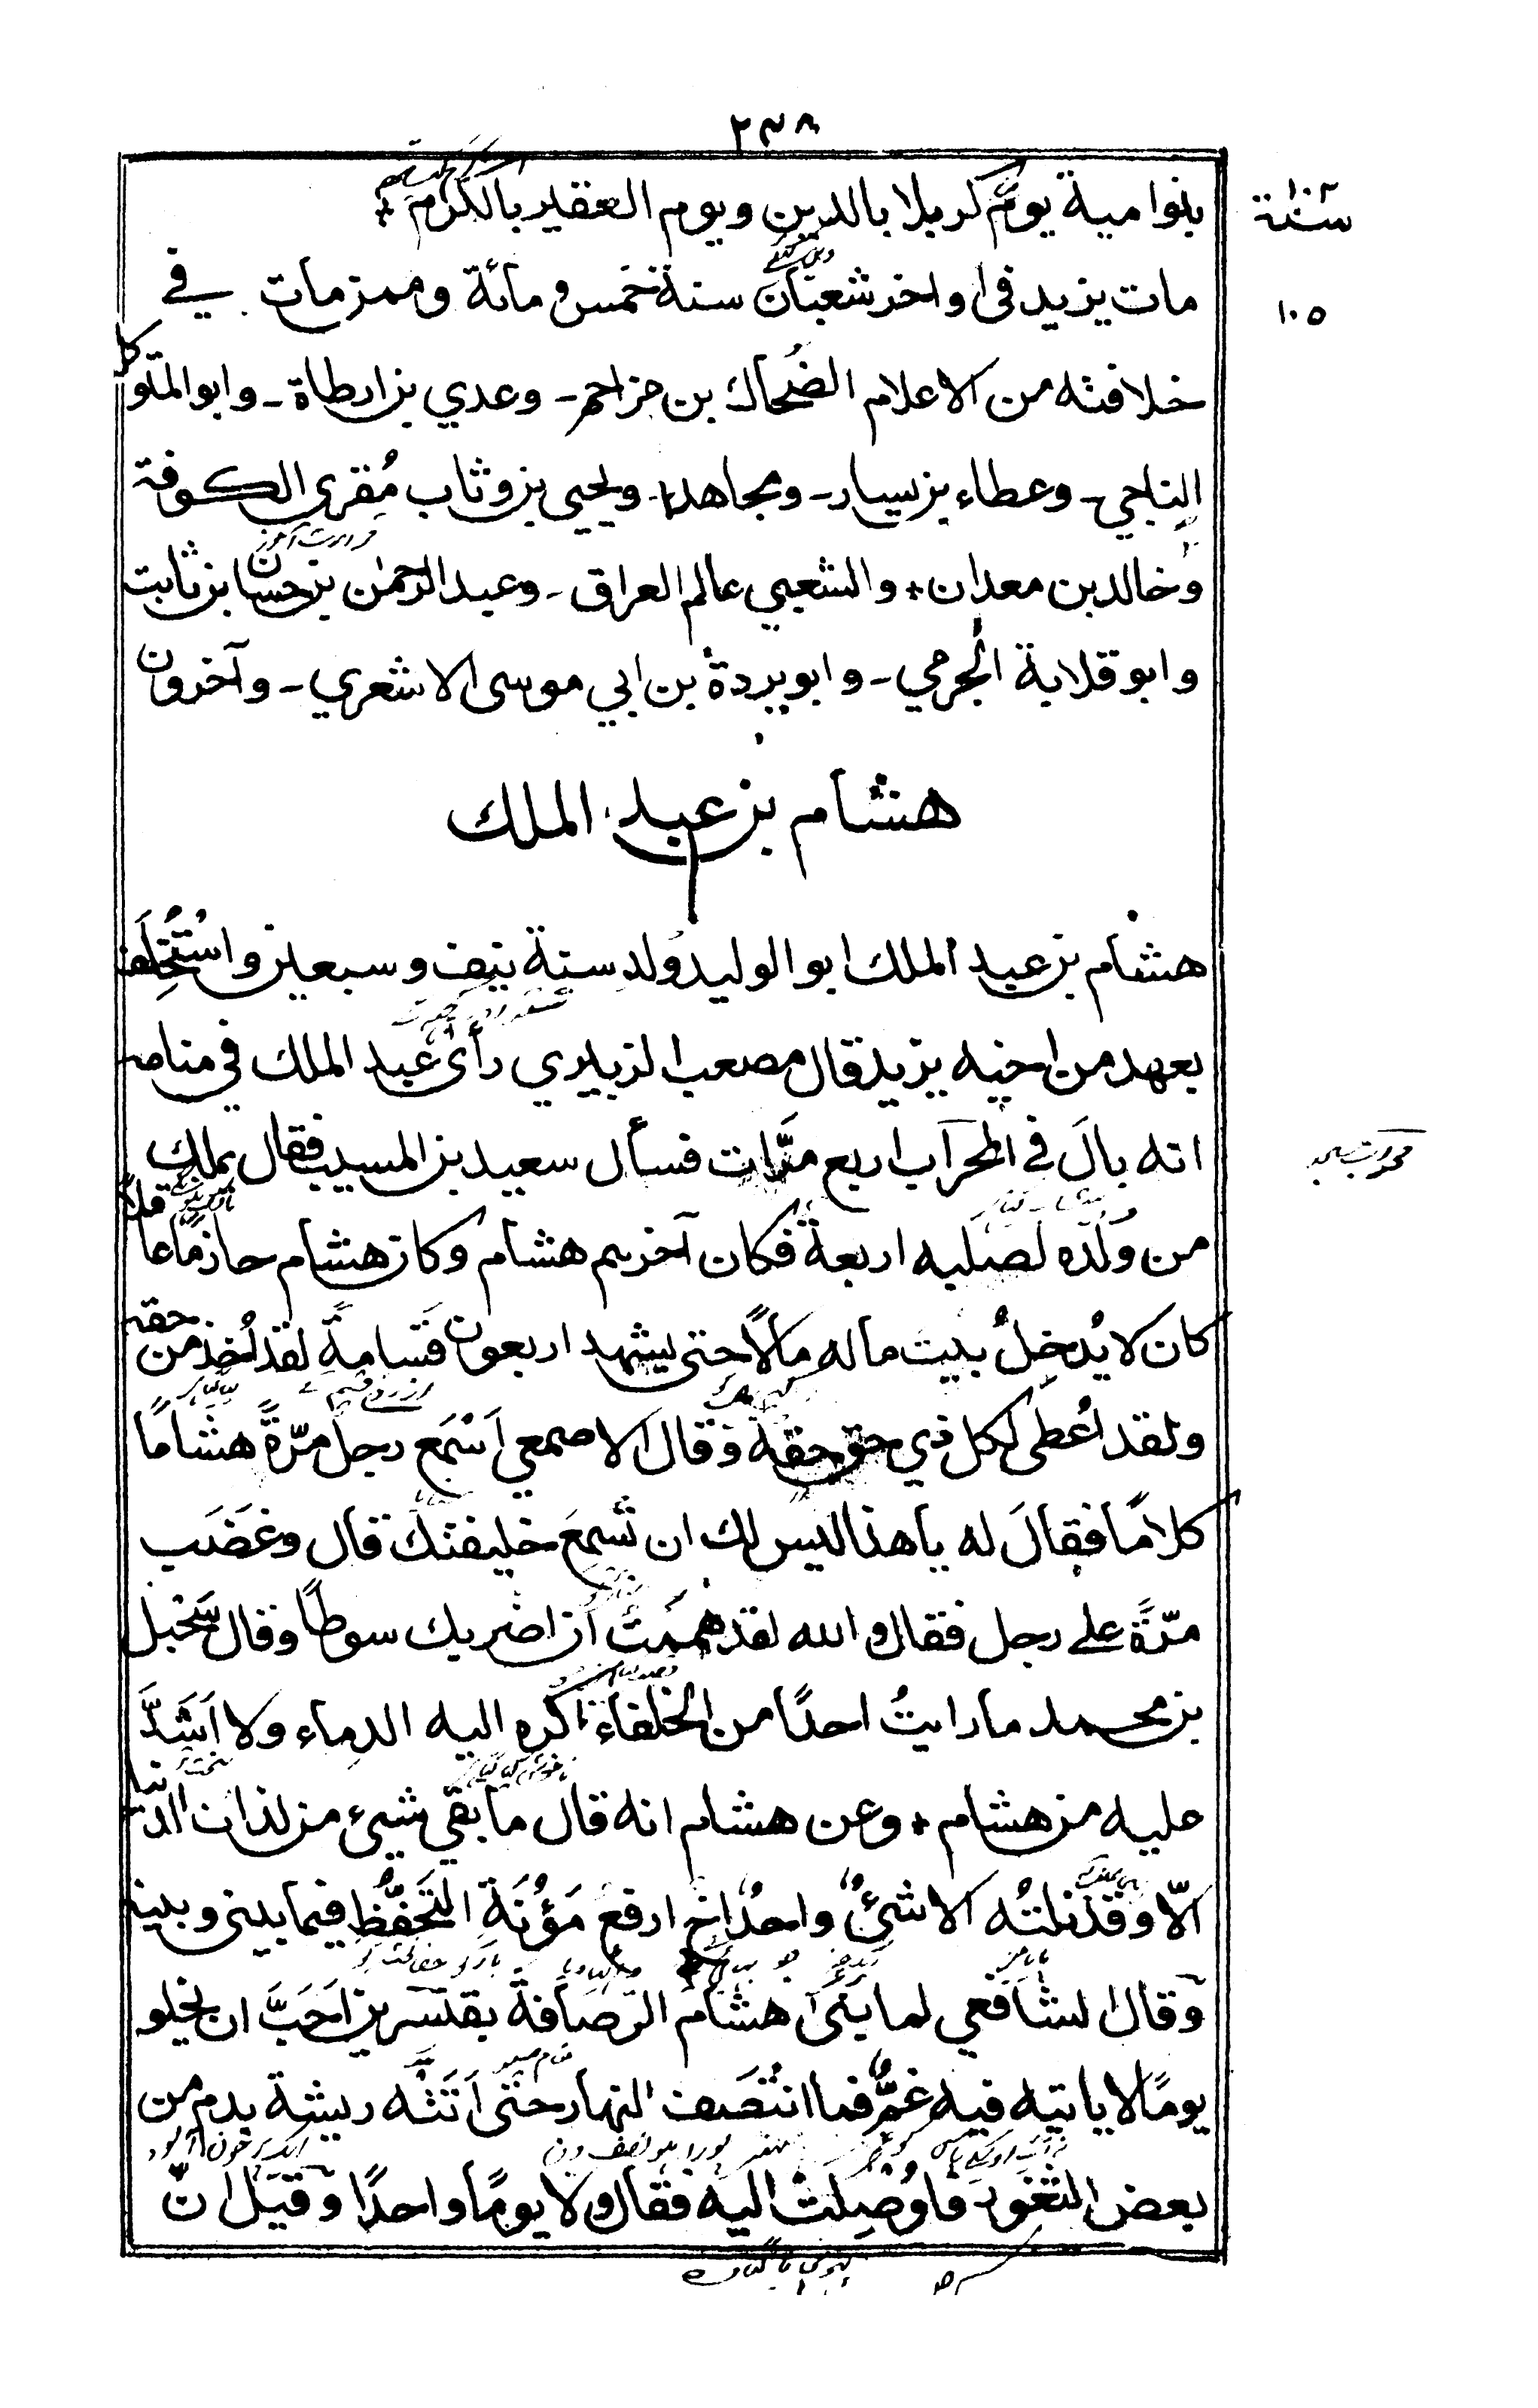 ٢٣٨
بنوا مية يوم كربلا بالدين ويوم العقير بالكرام *
سنة
مات يزيد فى اواخر شعبان سنة خمس و مائة وممن مات في
١٠٥
خلافته من الاعلام الضحاك بن مزاحم - وعدي بن ارطاة - وابو المتوكل
الناجي - وعطاء بن يسار - ومجاهد - ويحيى بن وثاب مُقرى الكوفة
وخالد بن معدان * والشعبي عالم العراق - وعبد الرحمن بن حسان بن ثابت
وابو قلابة الجرمي - وابو بردة بن ابي موسى الاشعري - وآخرون
هشام بن عبد الملك
هشام بن عبد الملك ابو الوليد وُلِد سنة نيف وسبعين واسْتُخْلِف
بعهد من اخيه يزيد قال مصعب الزبيري رأى عبد الملك في منامه
انه بالَ في المحراب اربع مرَّات فسأل سعيد بن المسيب فقال يملك
من وَلَده لصلبه اربعة فكان آخرهم هشام وكان هشام حازمًا عاقلًا
كان لا يُدخِلُ بيت ماله مالًا حتى يشهد اربعون قَسَامةً لقد اُخذ من حقه
ولقد اُعطى لكل ذي حق حقه وقال الاصمعي اَسْمَع رجل مرّةً هشامًا
كلامًا فقالَ له يا هذا ليس لك ان تُسمعَ خليفتك قال وغَضَب
مرّةً على رجل فقال والله لقد هَمَمْتُ ان اضربك سوطًا وقال سَخبل
بن محمد ما رايتُ احدًا من الخلفاء اكره اليه الدماء ولا اَشَدَّ
عليه من هشام * وعن هشام انه قال ما بقي شيء من لذات الدنيا
الّا وقد نلتُه الا شئٌ واحدٌ اخ ارفع مَؤُنَةِ التَحَفُّظِ فيما بينى وبينه
وقال الشافعي لما بَنَى هشام الرُصَافة بقنسرين اَحَبَّ ان يخلو
يومًا لا ياتيه فيه غمٌّ فما انتَصَف النهار حتى اَتَتْه ريشة بدم من
بعض الثغور فاُوْصِلَتْ اليه فقال ولا يومًا واحدًا وقيل انّ